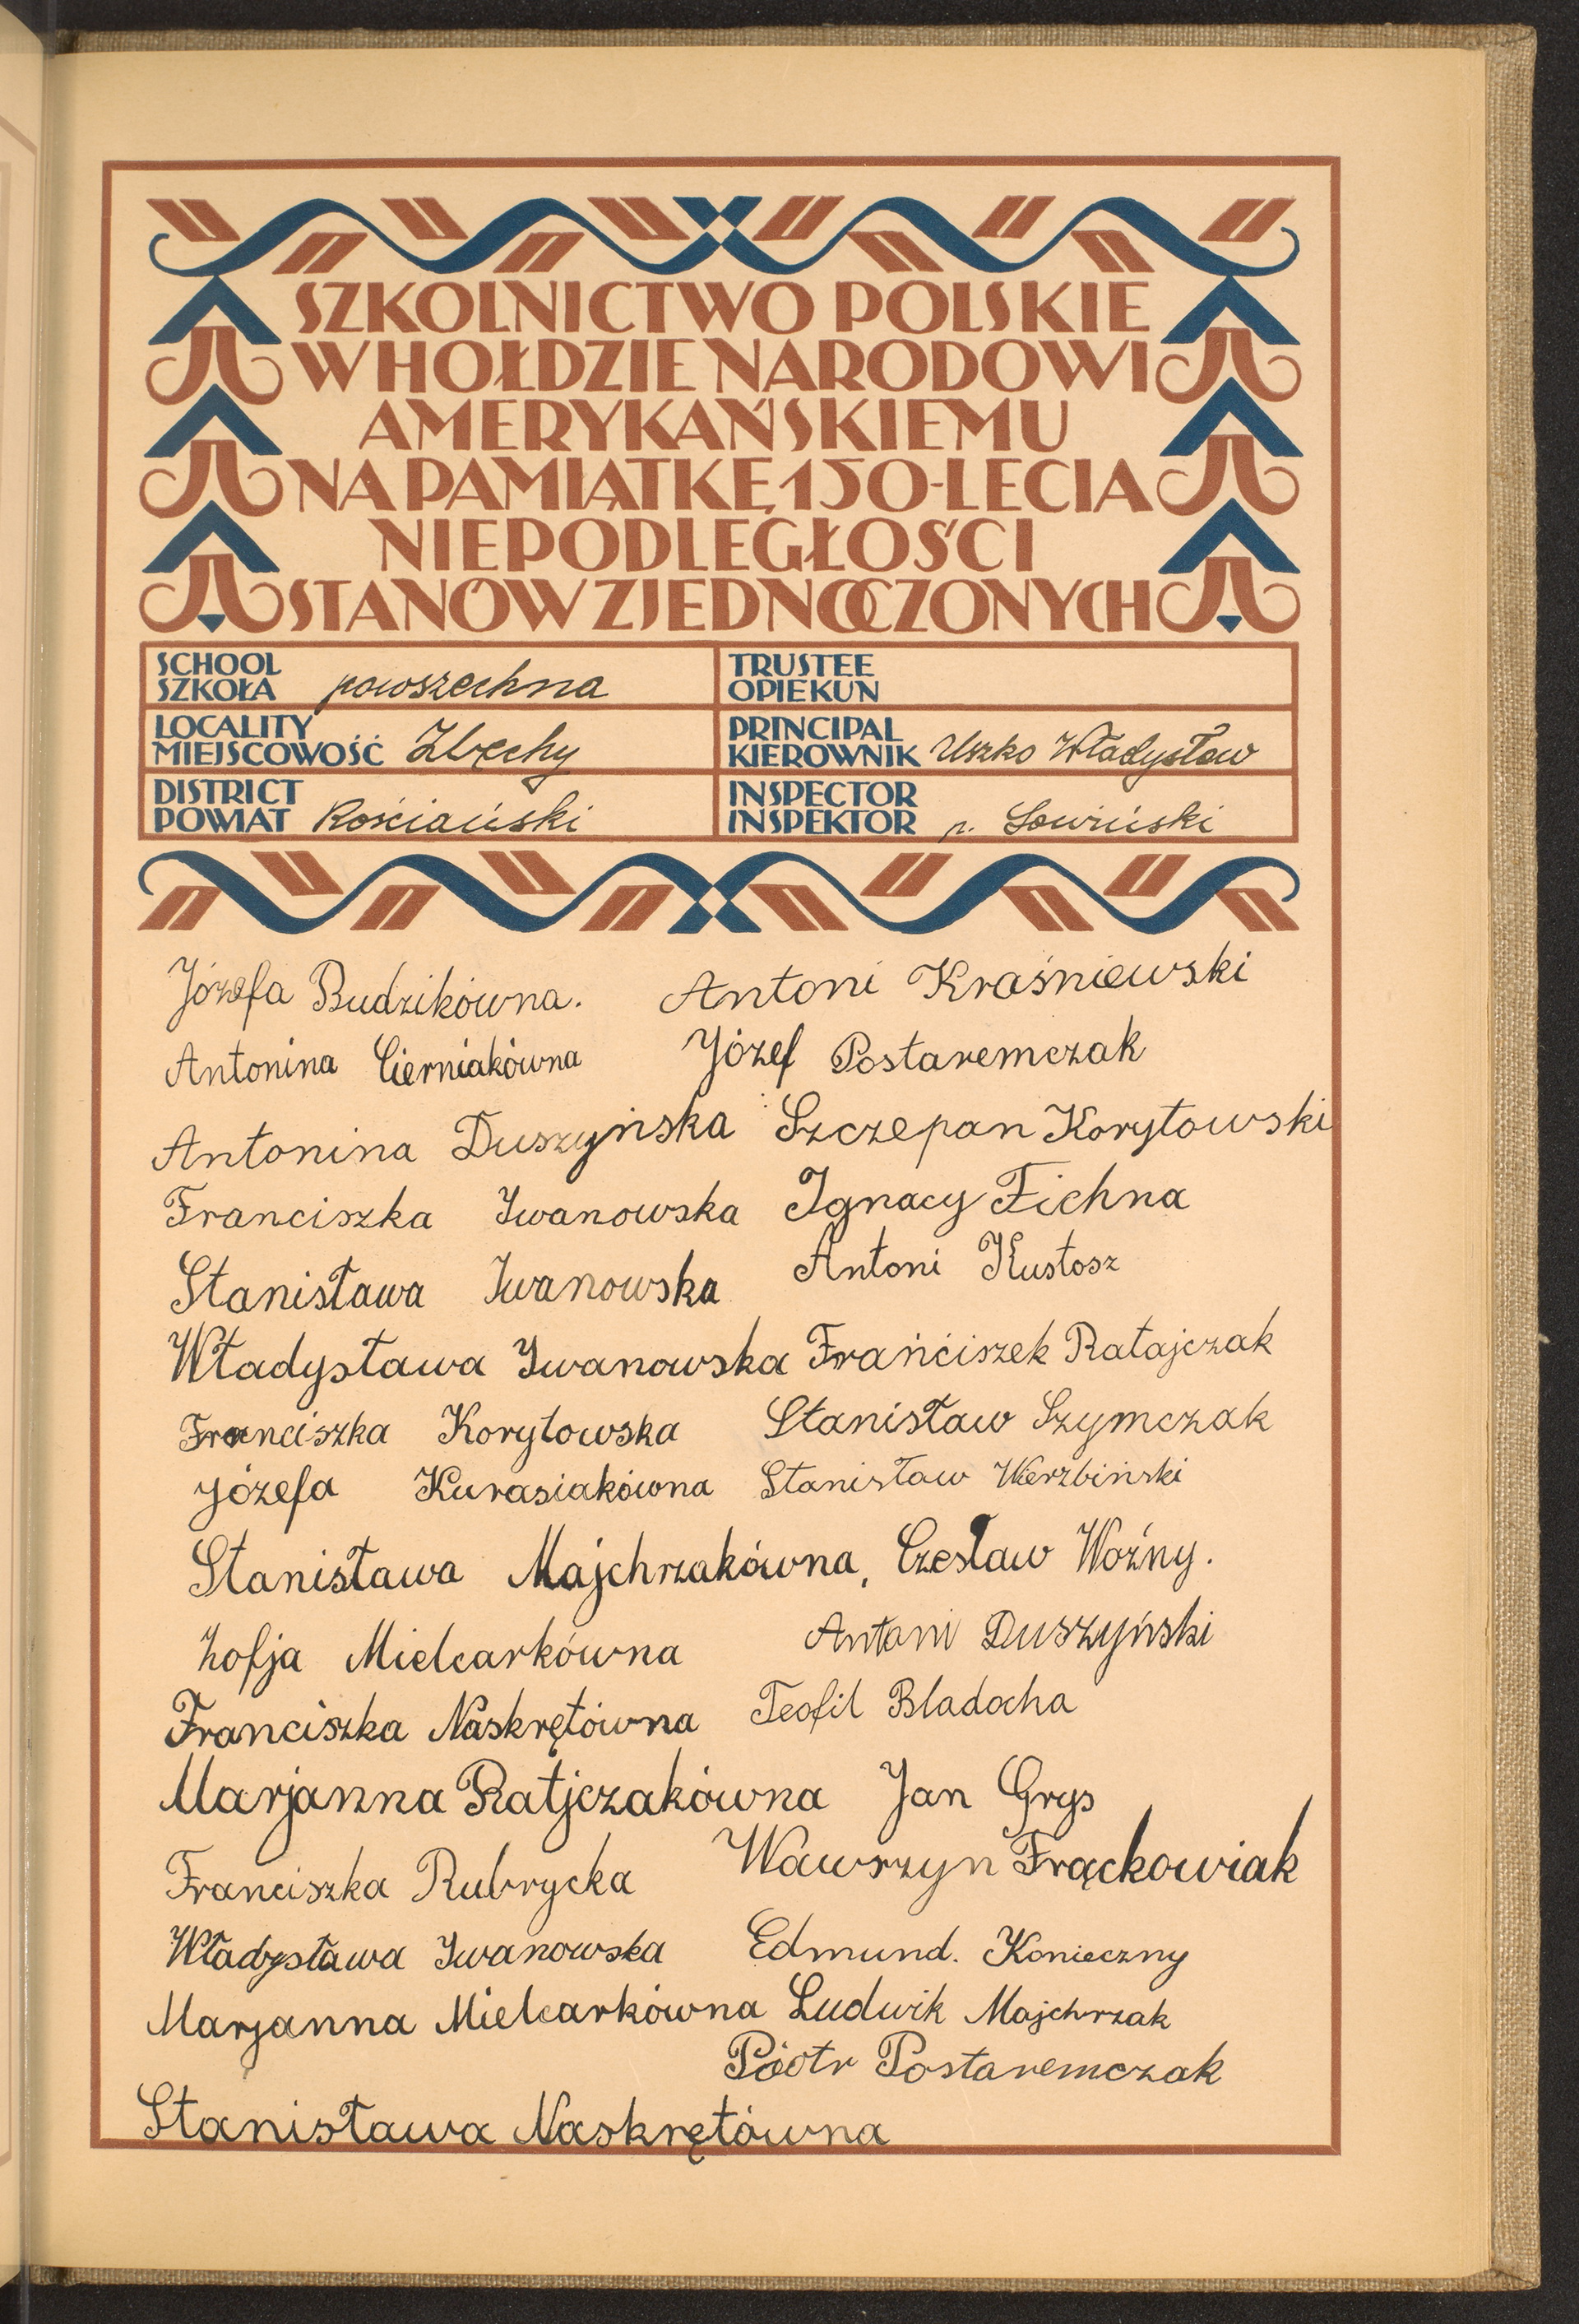 SZKOLNICTWO POLSKIE
W HOŁDZIE NARODOWI
AMERYKAŃSKIEMU
NA PAMIĄTKĘ 150-LECIA
NIEPODLEGŁOŚCI
STANÓW ZJEDNOCZONYCH
SCHOOL
SZKOŁA powszechna
TRUSTEE
OPIEKUN
LOCALITY
MIEJSCOWOŚĆ Zbęchy
PRINCIPAL
KIEROWNIK Uszko Władysław
DISTRICT
POWIAT Kościański
INSPECTOR
INSPEKTOR p. Łowiński
Józefa Budzikówna. Antoni Kraśniewski
Antonina Cierniakówna Józef Postaremczak
Antonina Duszyńska Szczepan Korytowski
Franciszka Iwanowska Ignacy Fichna
Stanisława Iwanowska Antoni Kustosz
Władysława Iwanowska Frańciszek Ratajczak
Franciszka Korytowska Stanisław Szymczak
Józefa Kurasiakówna Stanisław Wierzbiński
Stanisława Majchrzakówna, Czesław Woźny.
Zofja Mielcarkówna Antoni Duszyński
Franciszka Naskrętówna Teofil Bladocha
Marjanna Ratjczakówna Jan Grys
Franciszka Rubrycka Wawrzyn Frąckowiak
Władysława Iwanowska Edmund. Konieczny
Marjanna Mielcarkówna Ludwik Majchrzak
Piotr Postaremczak
Stanisława Naskrętówna